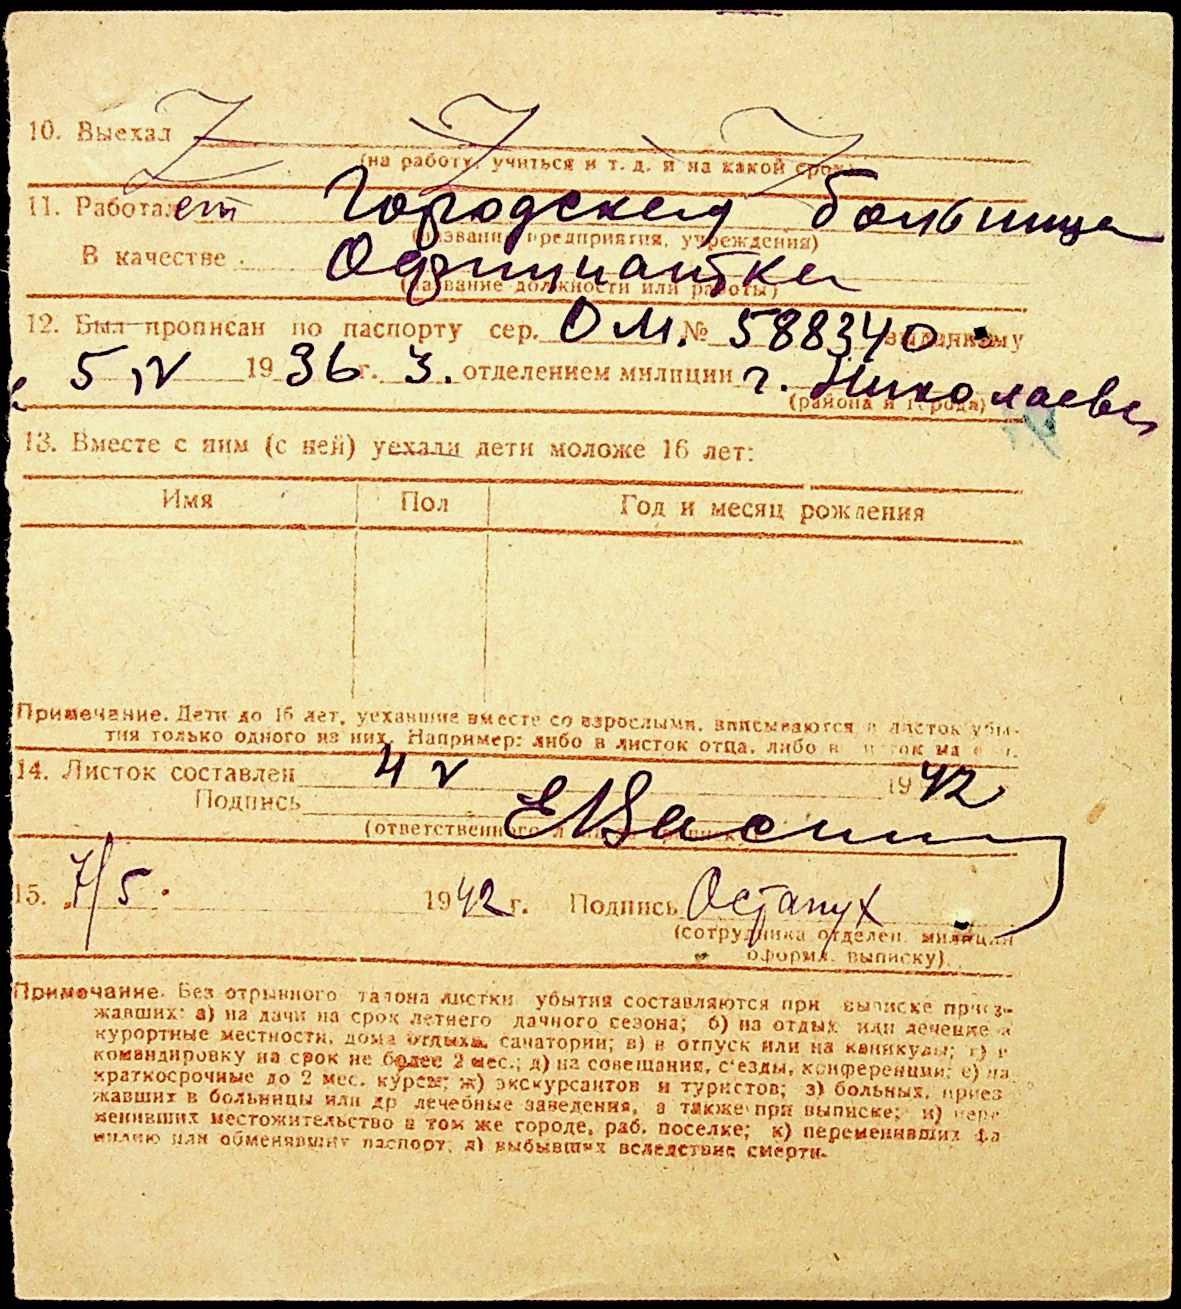 10. Выехал
(на работу, учиться и т. д. и на какой срок)
11. Работает Городская больница
(название предприятия, учреждения)
В качестве Официантка
(название должности или работы)
12. Был прописан по паспорту сер. ОМ. № 588340 выданному
5 IV 1936 г. 3. отделением милиции г. Николаев
(района и города)
13. Вместе с ним (с ней) уехали дети моложе 16 лет:
Имя Пол Год и месяц рождения
Примечание. Дети до 16 лет, уехавшие вместе со взрослыми, вписываются в листок убы-
тия только одного из них. Например: либо в листок отца, либо в листок матери.
14. Листок составлен 4 V 1942
Подпись
(ответственного
15. 7/5. 1942 г. Подпись Остапух
(сотрудника отделен. милиции
оформ. выписку)
Примечание. Без отрывного талона листки убытия составляются при выписке приез-
жавших: а) на дачи на срок летнего дачного сезона; б) на отдых или лечение в
курортные местности, дома отдыха, санатории; в) в отпуск или на каникулы; г) в
командировку на срок не более 2 мес.; д) на совещания, с'езды, конференции; е) на
краткосрочные до 2 мес. курсы; ж) экскурсантов и туристов; з) больных, приез
жавших в больницы или др лечебные заведения, а также при выписке; и) пере
менивших местожительство в том же городе, раб. поселке; к) переменивших фа
милию или обменявших паспорт; л) выбывших вследствие смерти.